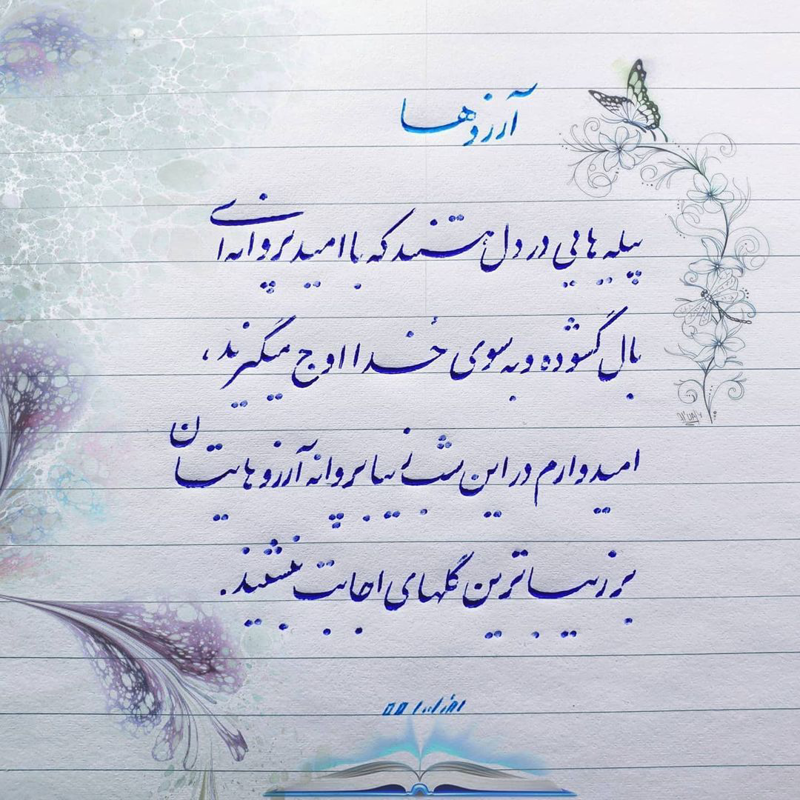 آرزوها
پیله هایی در دل هستند که با امید پروانه ای
بال گشوده و به سوی خُدا اوج میگیرند،
امیدوارم در این شب زیبا پروانه آرزوهایتان
بر زیباترین گلهای اجابت بنشیند.